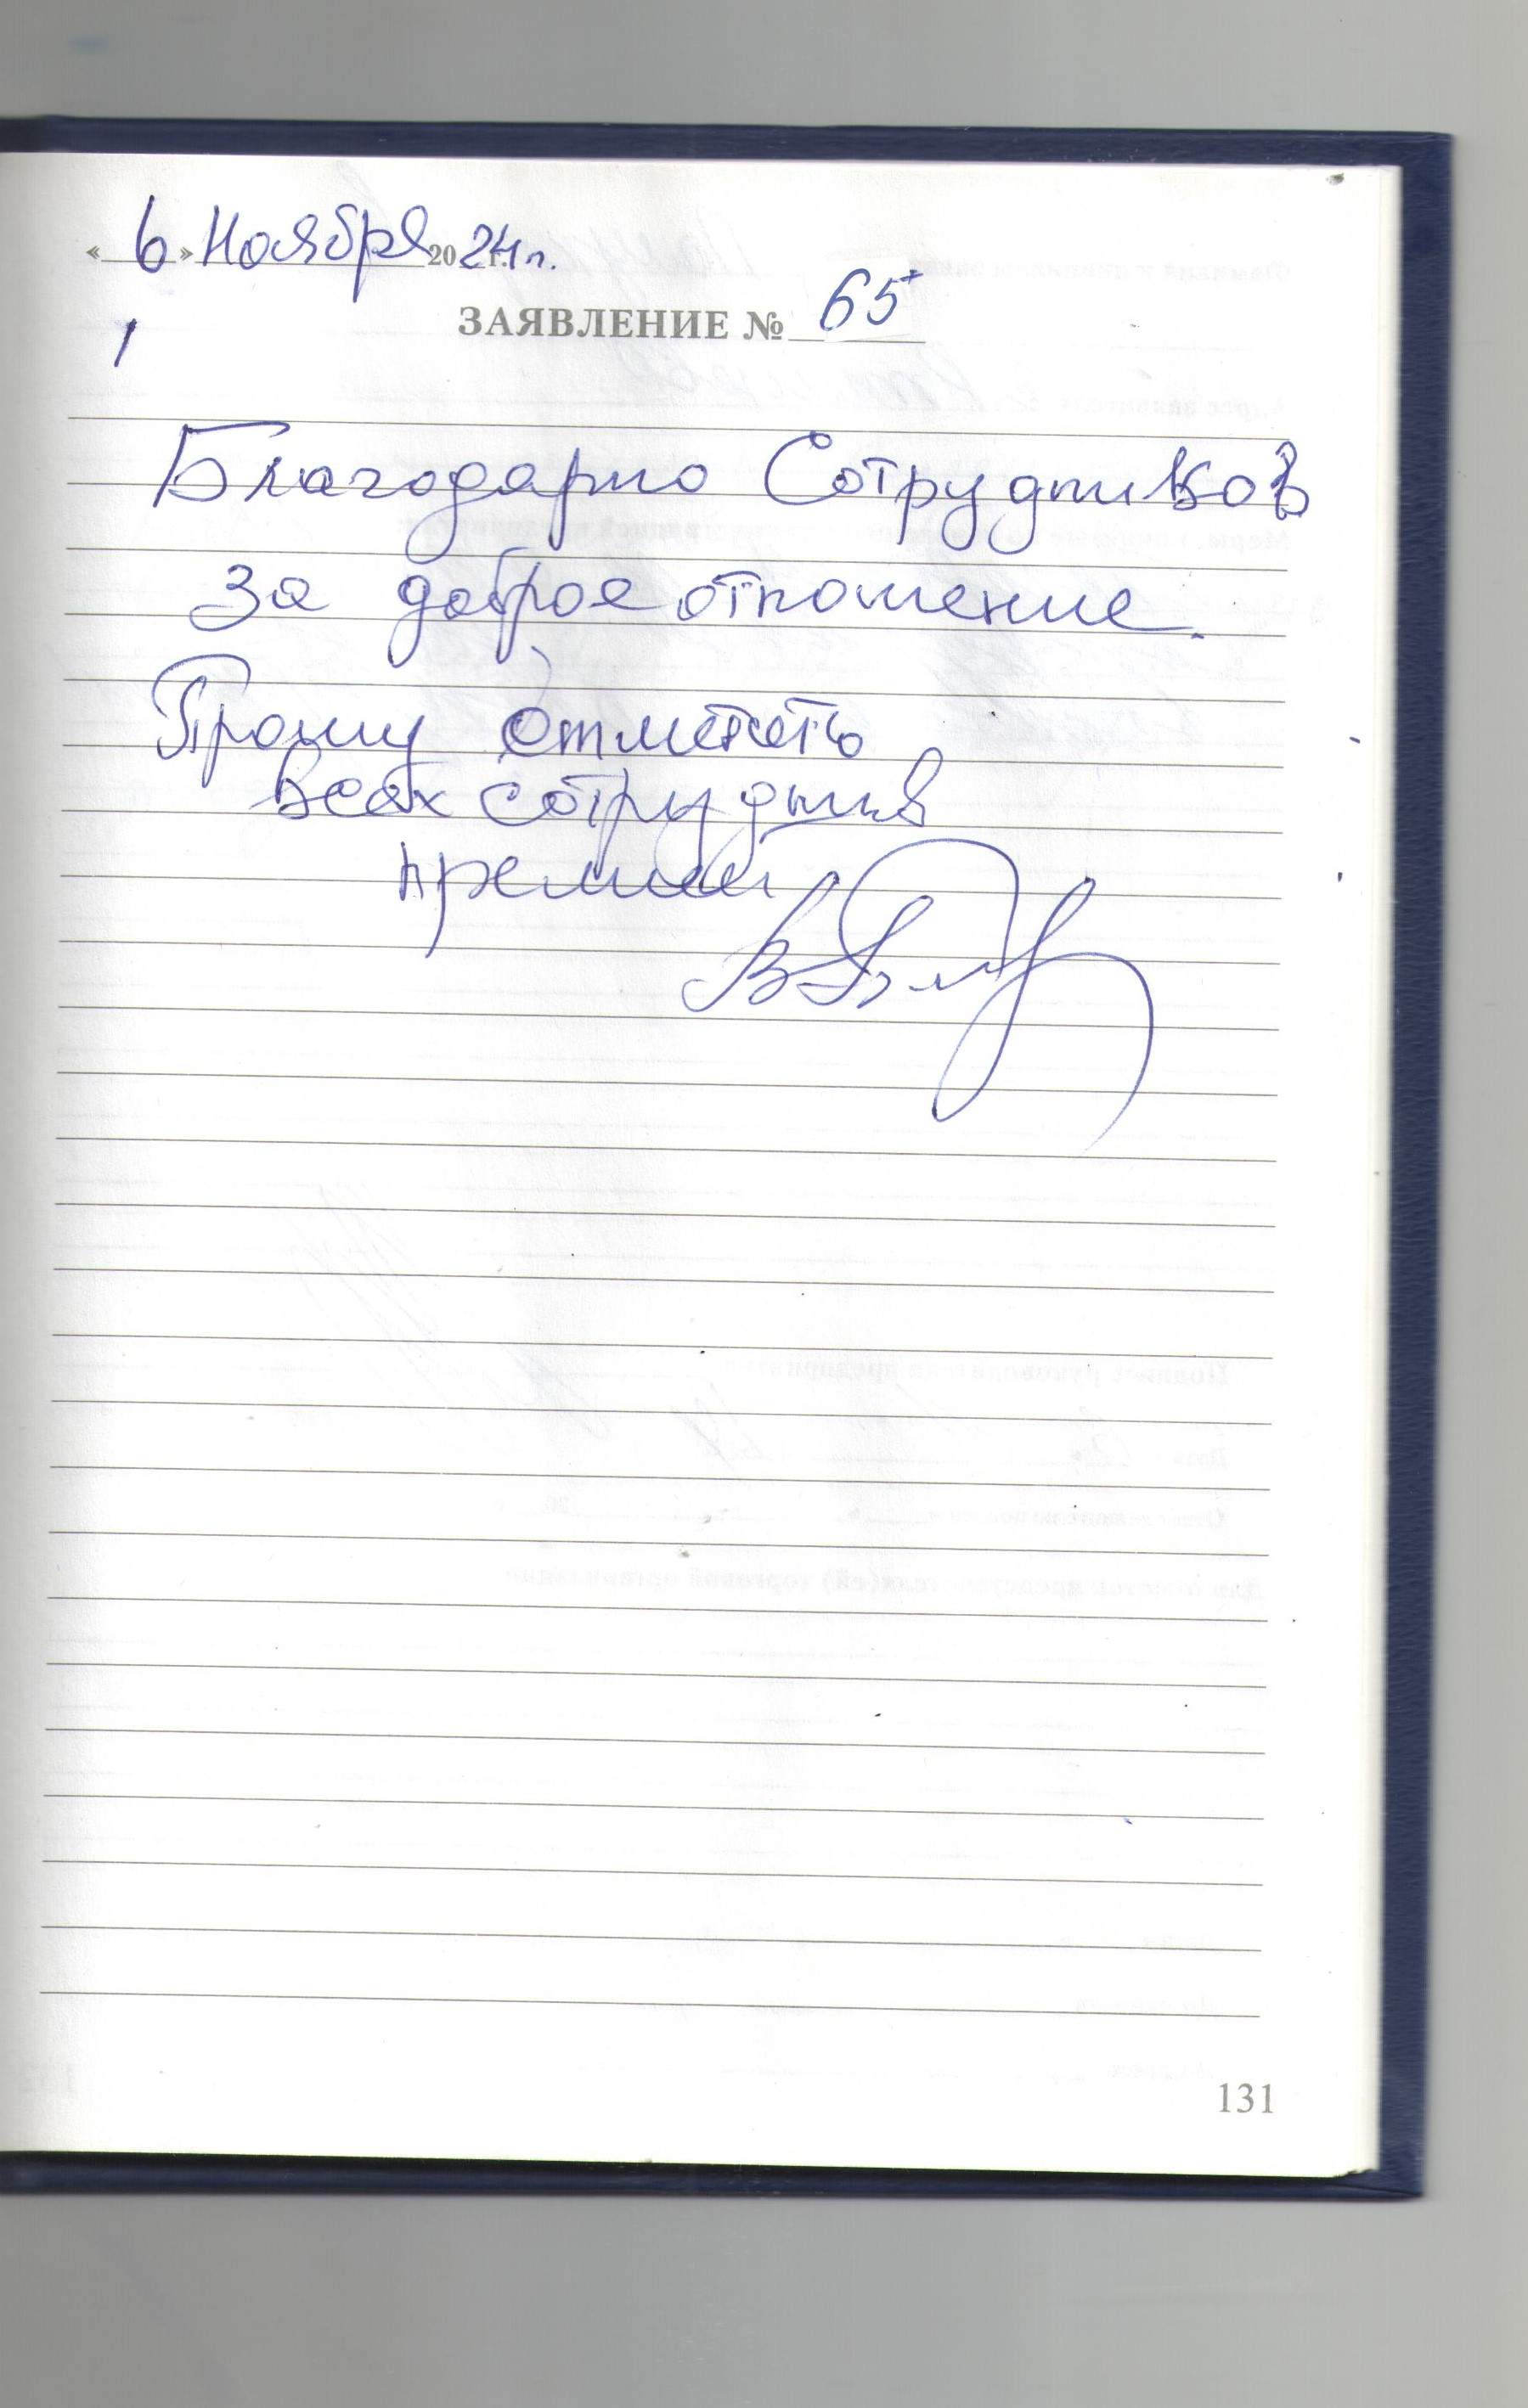 « 6 » Ноября 2024 г.
ЗАЯВЛЕНИЕ № 65
Благодарю Сотрудников
за доброе отношение.
Прошу отметить
всех сотрудник
премией
131